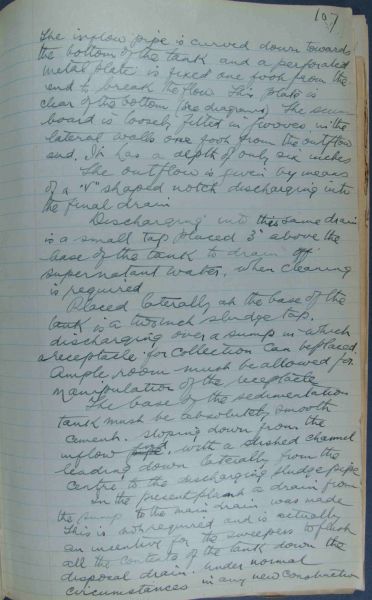 107
The inflow pipe is curved down towards
the bottom of the tank and a perforated
metal plate is fixed one foot from the
end to break the flow. This plate is
clear of the bottom (see diagram). The scum
board is loosely fitted in grooves in the
lateral walls one foot from the outflow
end. It has a depth of only six inches
The outflow is given by means
of a "V" shaped notch discharging into
the final drain
Discharging into this same drain
is a small tap placed 3" above the
base of the tank to drain off
supernatant water, when clearing
is required.
Placed laterally at the base of the
tank is a two inch sludge tap.
discharging over a sump in which
a receptacle for collection can be placed.
Ample room must be allowed for
manipulation of the receptacle
The base of the sedimentation
tank must be absolutely smooth
cement, sloping down from the
inflow, with a dished channel
leading down laterally from the
centre to the discharging sludge pipe
In the present plant a drain from
the sump to the main drain was made
This is not required and is actually
an incentive for the sweepers to flush
all the contents of the tank down the
disposal drain. Under normal
circumstances in any new construction